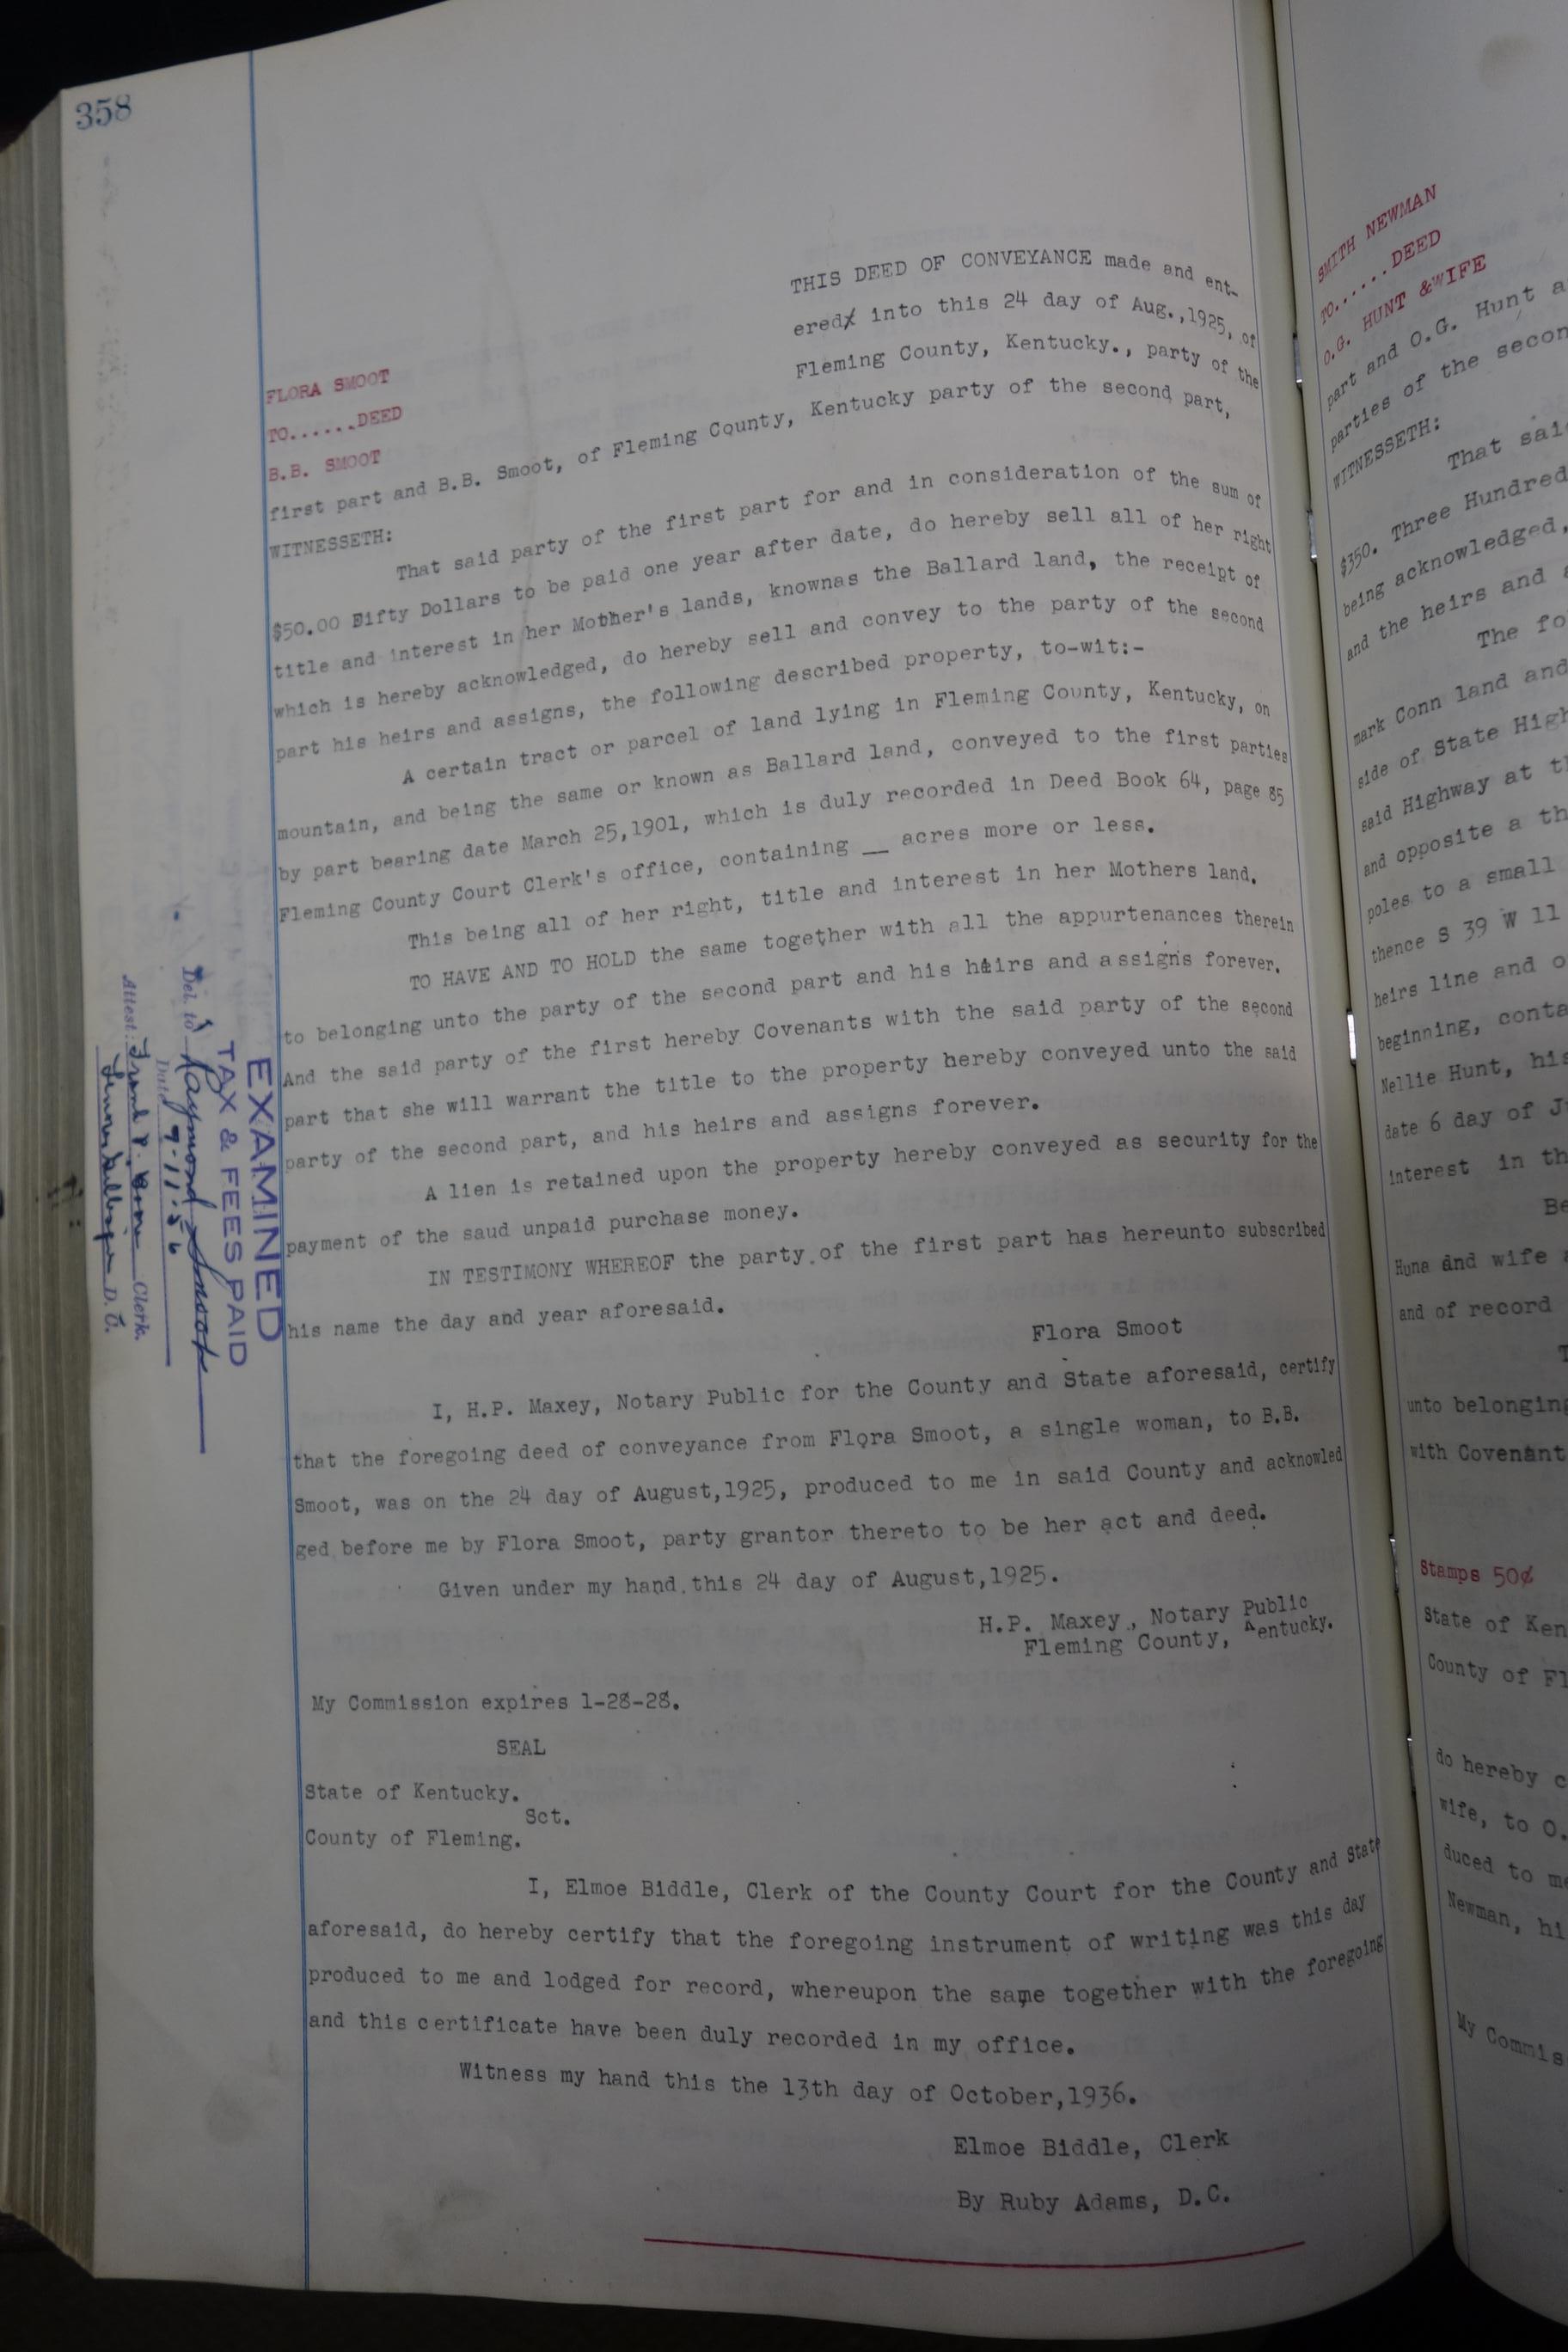 358
THIS DEED OF CONVEYANCE made and ent-
ered into this 24 day of Aug.,1925, of
Fleming County, Kentucky., party of the
FLORA SMOOT
TO......DEED
B.B. SMOOT
first part and B.B. Smoot, of Fleming County, Kentucky party of the second part,
WITNESSETH:
That said party of the first part for and in consideration of the sum of
$50.00 Fifty Dollars to be paid one year after date, do hereby sell all of her right
title and interest in her Mother's lands, knownas the Ballard land, the receipt of
which is hereby acknowledged, do hereby sell and convey to the party of the second
part his heirs and assigns, the following described property, to-wit:-
A certain tract or parcel of land lying in Fleming County, Kentucky, on
mountain, and being the same or known as Ballard land, conveyed to the first parties
by part bearing date March 25,1901, which is duly recorded in Deed Book 64, page 85
Fleming County Court Clerk's office, containing __ acres more or less.
This being all of her right, title and interest in her Mothers land.
TO HAVE AND TO HOLD the same together with all the appurtenances therein
to belonging unto the party of the second part and his heirs and assigns forever.
And the said party of the first hereby Covenants with the said party of the second
part that she will warrant the title to the property hereby conveyed unto the said
party of the second part, and his heirs and assigns forever.
A lien is retained upon the property hereby conveyed as security for the
payment of the saud unpaid purchase money.
IN TESTIMONY WHEREOF the party of the first part has hereunto subscribed
his name the day and year aforesaid.
Flora Smoot
I, H.P. Maxey, Notary Public for the County and State aforesaid, certify
that the foregoing deed of conveyance from Flora Smoot, a single woman, to B.B.
Smoot, was on the 24 day of August,1925, produced to me in said County and acknowled
ged before me by Flora Smoot, party grantor thereto to be her act and deed.
Given under my hand this 24 day of August,1925.
H.P. Maxey, Notary Public
Fleming County, Kentucky.
My Commission expires 1-28-28.
SEAL
State of Kentucky.
Sct.
County of Fleming.
I, Elmoe Biddle, Clerk of the County Court for the County and State
aforesaid, do hereby certify that the foregoing instrument of writing was this day
produced to me and lodged for record, whereupon the same together with the foregoing
and this certificate have been duly recorded in my office.
Witness my hand this the 13th day of October,1936.
Elmoe Biddle, Clerk
By Ruby Adams, D.C.
EXAMINED
TAX & FEES PAID
Del. to Raymond Smoot
Date 9-11-56
Attest: Frank P. Clerk.
D. C.
SMITH NEWMAN
TO......DEED
O.G. HUNT &WIFE
part and O.G. Hunt a
parties of the secon
WITNESSETH:
That said
$350. Three Hundred
being acknowledged,
and the heirs and a
The fo
mark Conn land and
side of State High
said Highway at th
and opposite a th
poles to a small
thence S 39 W 11
heirs line and o
beginning, conta
Nellie Hunt, his
date 6 day of Ju
interest in th
Be
Huna and wife a
and of record
T
unto belonging
with Covenant
Stamps 50¢
State of Ken
County of Fl
do hereby c
wife, to O.
duced to me
Newman, hi
My Commis